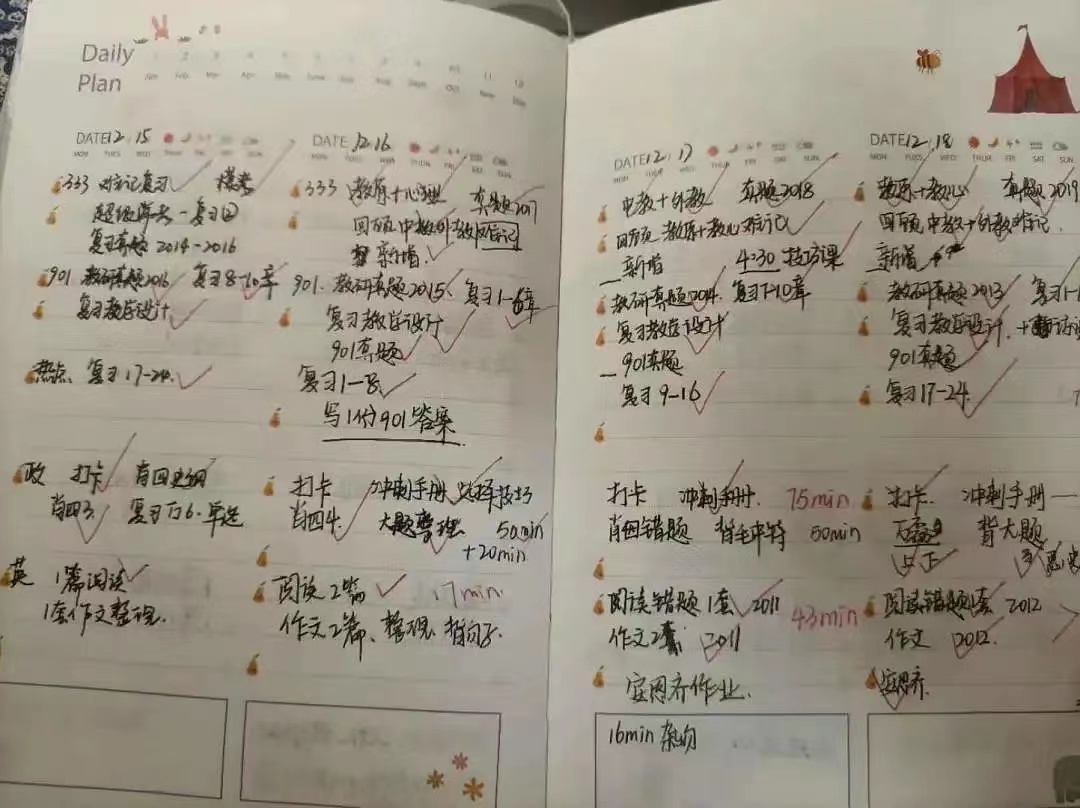 Daily
Plan
1 2 3 4 5 6 7 8 9 10 11 12
Jan Feb Mar Apr May June July Aug Sep Oct Nov Dec
DATE 12.15
MON TUES WED THUR FRI SAT SUN
333 对标记复习 模考
复习真题 2014-2016
901 教研真题2016 复习8-10章
复习教学设计
热点 复习17-24
政 打卡
肖四3 单选
英 1篇阅读
1套作文整理
DATE 12.16
MON TUES WED THUR FRI SAT SUN
333 教原+心理 真题2017
回顾中教外教标记
新增
901 教研真题2015、复习1-6章
复习教学设计
901真题
复习1-8
写1份901答案
打卡 冲刺手册 选择技巧
肖四4 大题整理 50min
+20min
阅读2篇 17min
作文2篇、整理、背句子
DATE 12.17
MON TUES WED THUR FRI SAT SUN
中教+外教 真题2018
回顾 教原+教心标记
新增 4:30 技巧课
教研真题2014 复习7-10章
复习教学设计
901真题
复习9-16
打卡 冲刺手册 75min
肖四错题 背毛中特 50min
阅读错题1套 2011 43min
作文2 2011
作业
16min 杂物
DATE 12.18
MON TUES WED THUR FRI SAT SUN
教原+教心 真题2019
回顾 中教+外教标记
新增
教研真题2013 复习1-
复习教学设计
901真题
复习17-24
打卡 冲刺手册
背大题
阅读错题1套 2012
作文 2012